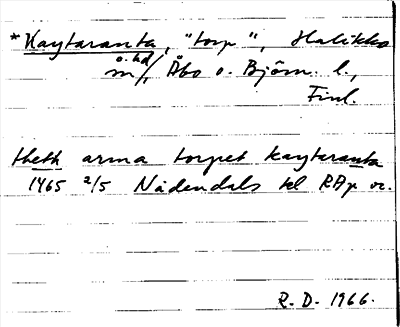 *Kaytaranta, "torp", Halikko
o. hd
m/, Åbo o. Björn. l.,
Finl.
theth arma torpet kaytaranta
1465 2/5 Nådendals kl RAp or.
R. D. 1966.